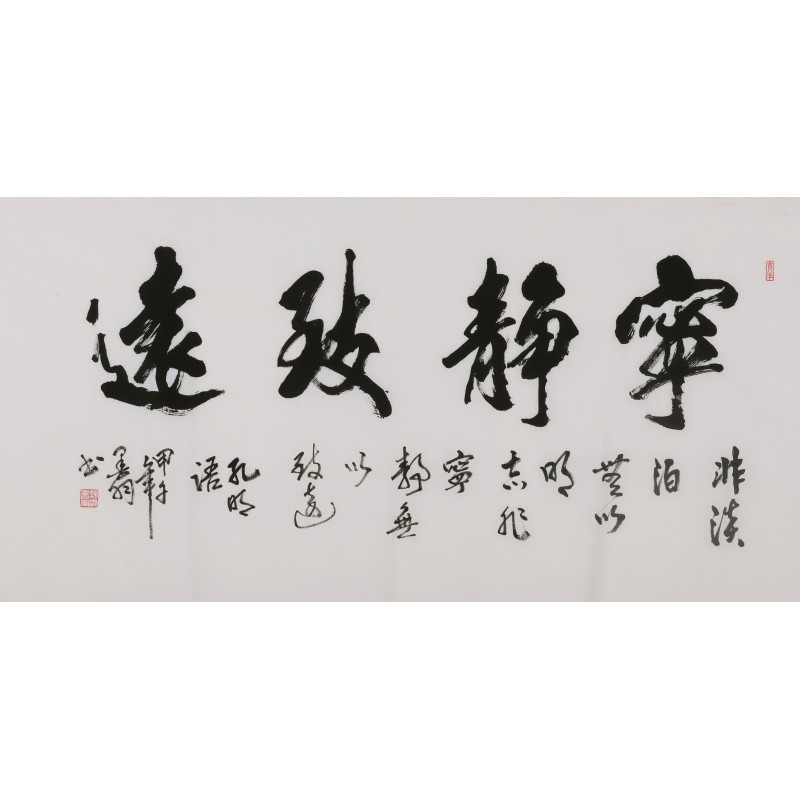 寧靜致遠
非淡
泊
無以
明
志非
寧
靜無
以
致遠
孔明
語
甲午年
墨翔
书